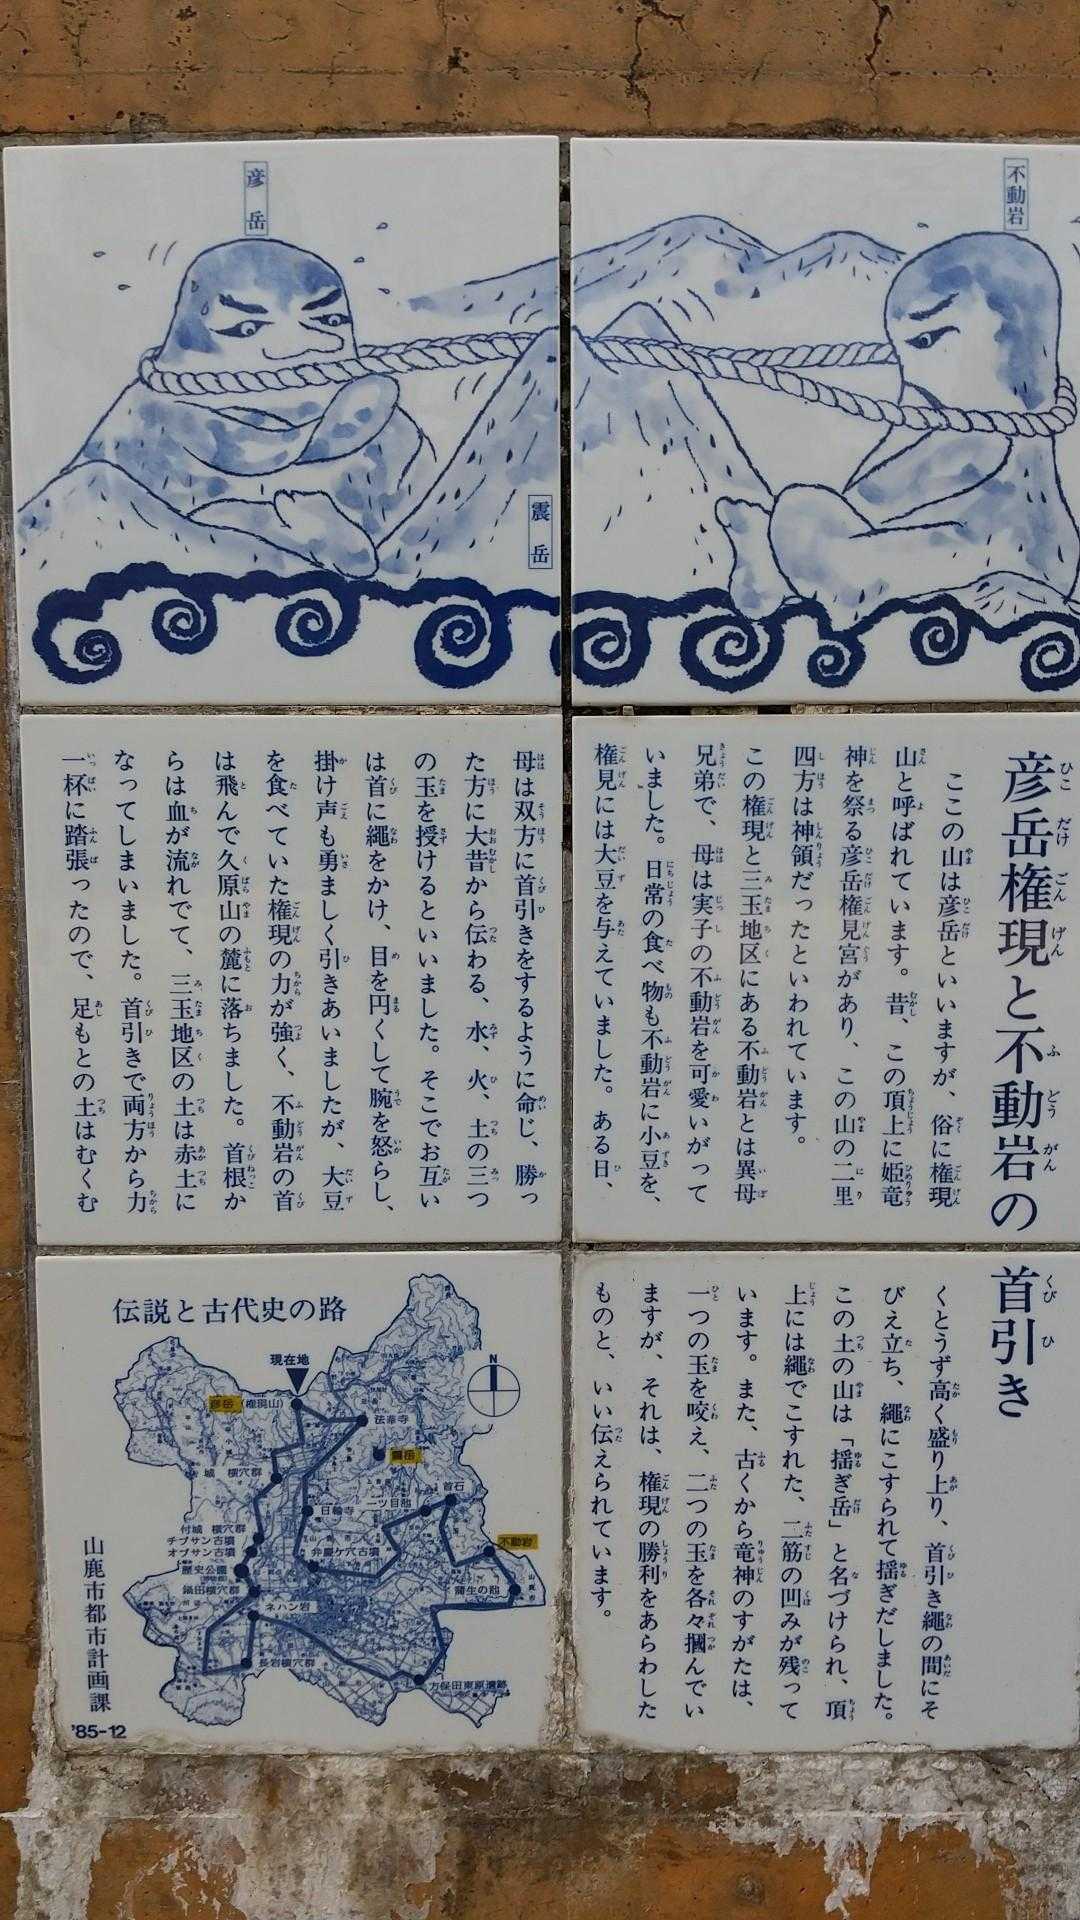 不動岩
彦岳
震岳
彦岳権現と不動岩の首引き
ここの山は彦岳といいますが、俗に権現
山と呼ばれています。昔、この頂上に姫竜
神を祭る彦岳権見宮があり、この山の二里
四方は神領だったといわれています。
この権現と三玉地区にある不動岩とは異母
兄弟で、母は実子の不動岩を可愛いがって
いました。日常の食べ物も不動岩に小豆を、
権見には大豆を与えていました。ある日、
母は双方に首引きをするように命じ、勝っ
た方に大昔から伝わる、水、火、土の三つ
の玉を授けるといいました。そこでお互い
は首に縄をかけ、目を円くして腕を怒らし、
掛け声も勇ましく引きあいましたが、大豆
を食べていた権現の力が強く、不動岩の首
は飛んで久原山の麓に落ちました。首根か
らは血が流れでて、三玉地区の土は赤土に
なってしまいました。首引きで両方から力
一杯に踏張ったので、足もとの土はむくむ
くとうず高く盛り上り、首引き縄の間にそ
びえ立ち、縄にこすられて揺ぎだしました。
この土の山は「揺ぎ岳」と名づけられ、頂
上には縄でこすれた、二筋の凹みが残って
います。また、古くから竜神のすがたは、
一つの玉を咬え、二つの玉を各々摑んでい
ますが、それは、権現の勝利をあらわした
ものと、いい伝えられています。
伝説と古代史の路
現在地
N
彦岳(権現山)
法華寺
震岳
城 横穴群
首石
二ツ目池
日輪寺
付城 横穴群
チブサン古墳
オブサン古墳
不動岩
弁慶ケ穴古墳
歴史公園
鍋田横穴群
蒲生の池
ネハン岩
長岩横穴群
方保田東原遺跡
山鹿市都市計画課
'85-12